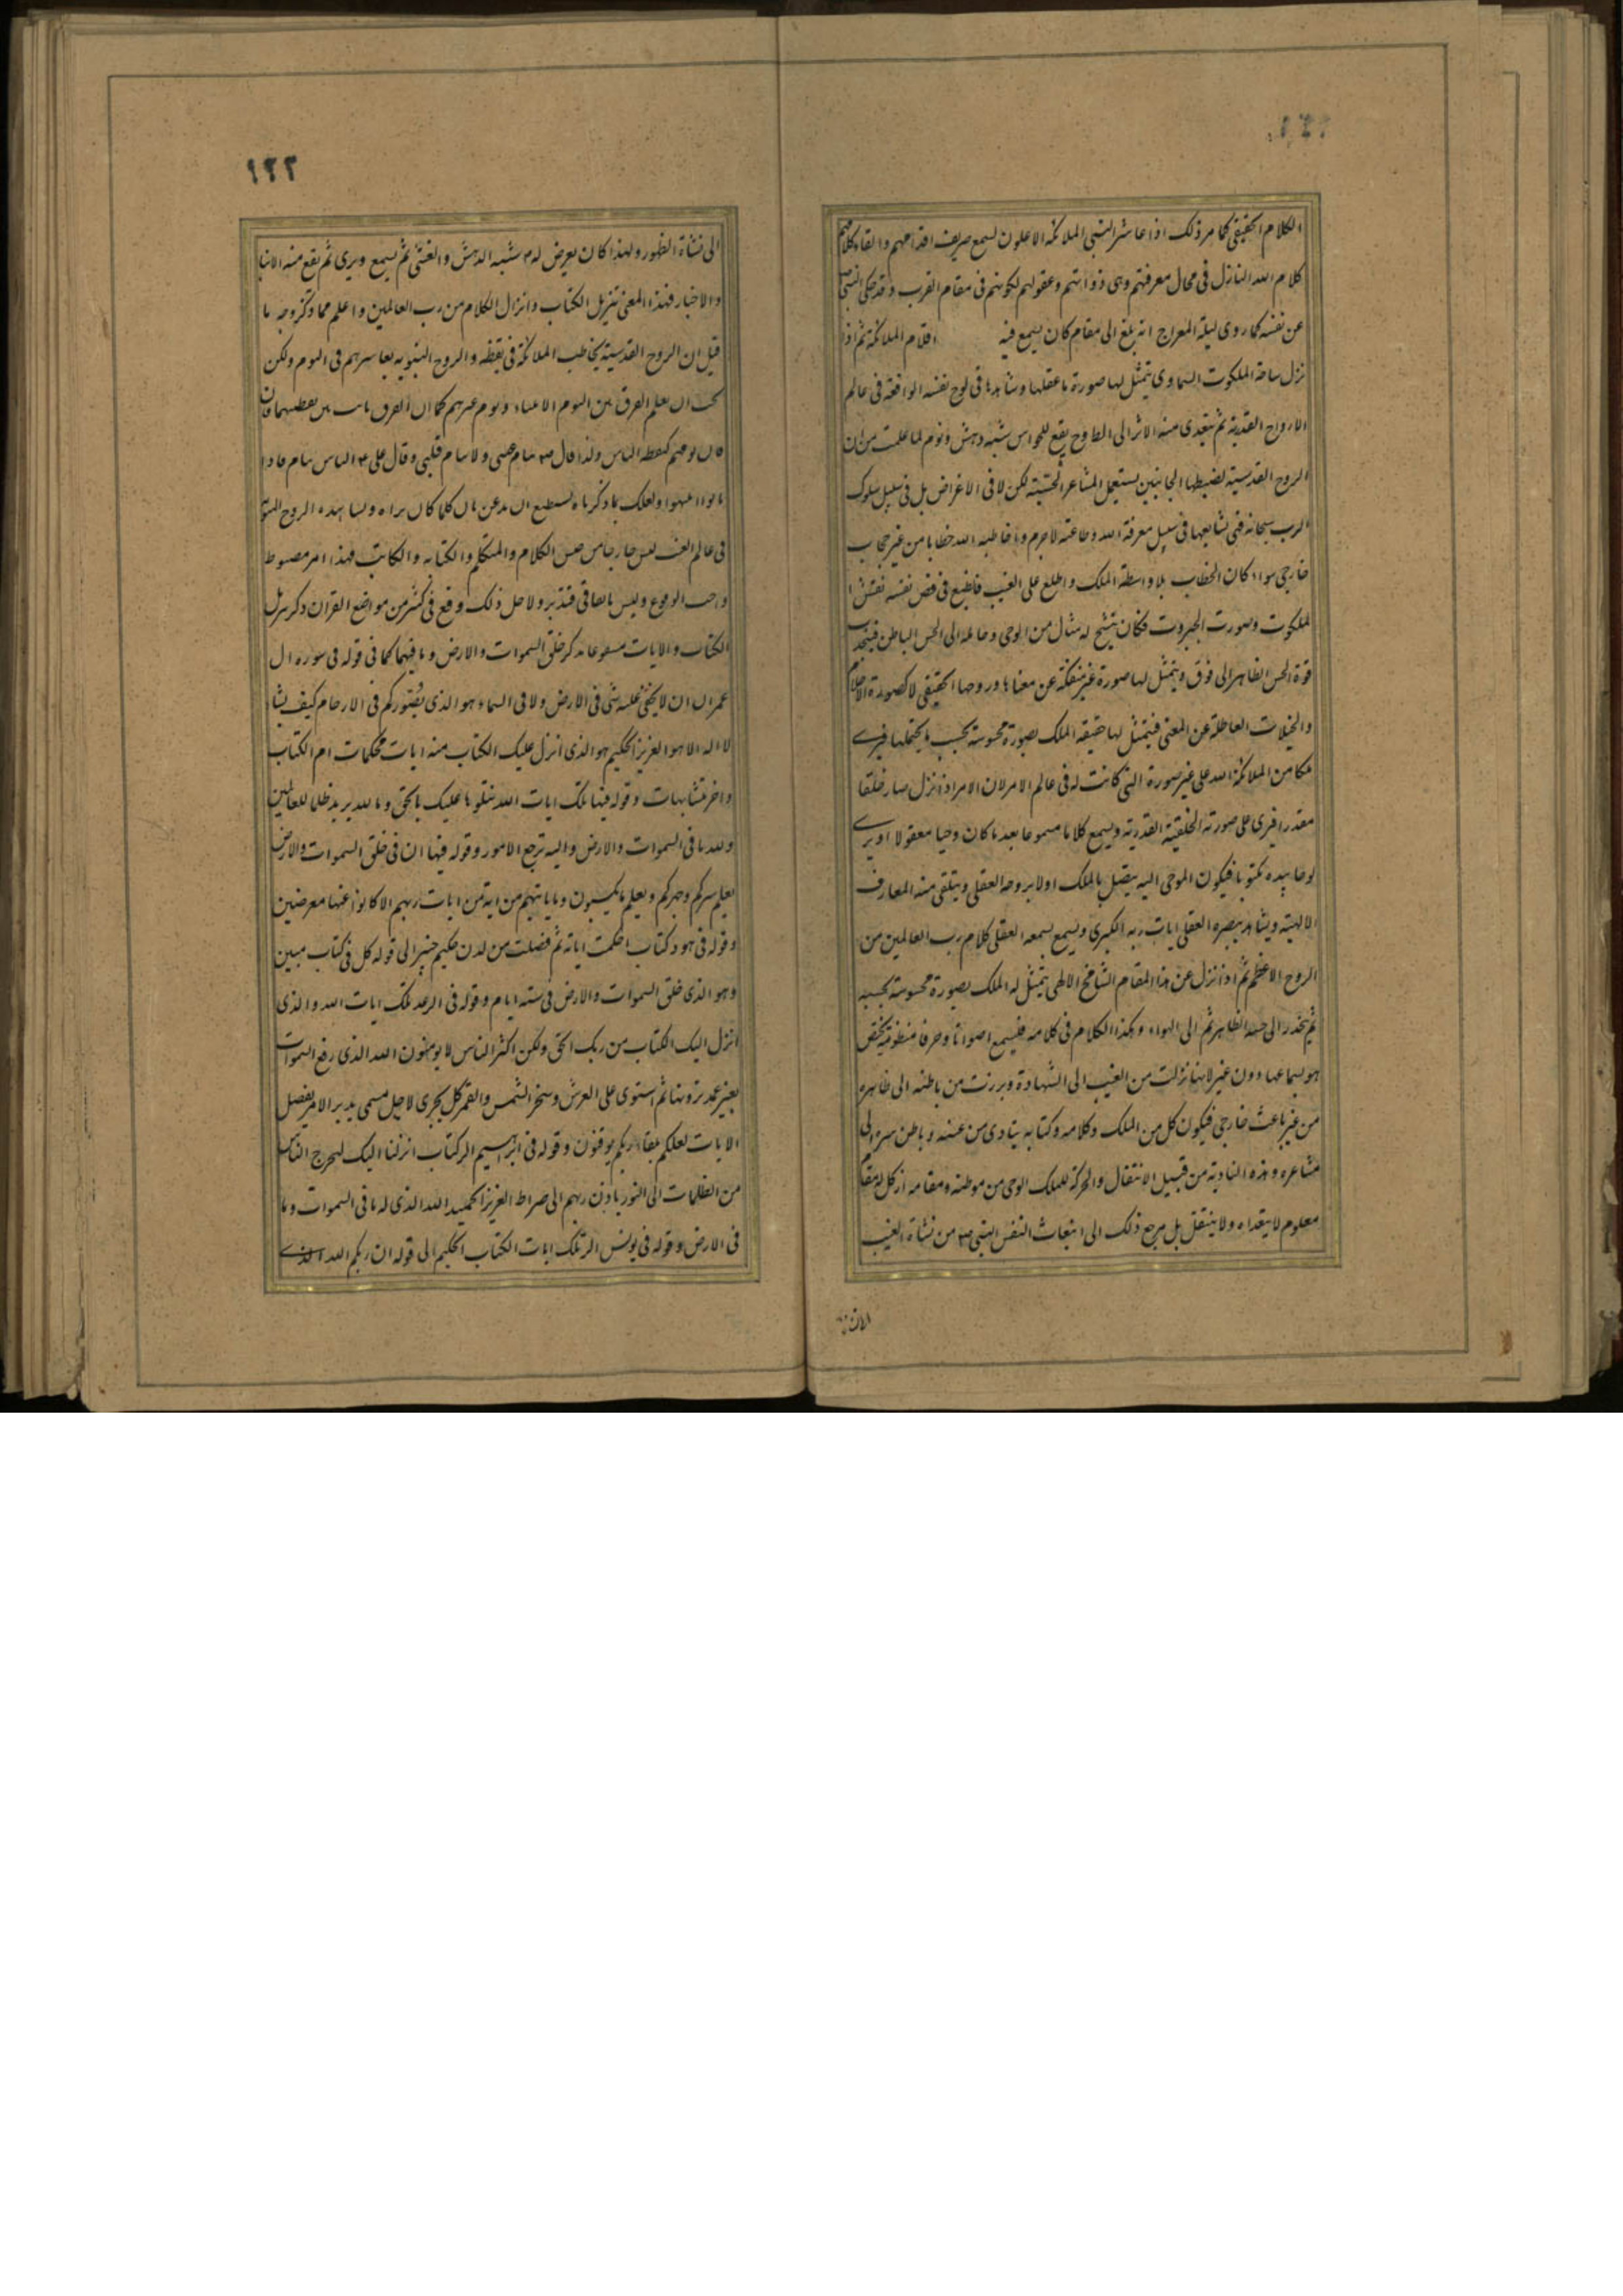 الكلام الحقيقى كما مر ذلك اذا عاشر النبى الملائكة الاعلون يسمع صريف اقلامهم والقاء كلامهم
كلام الله النازل فى محال معرفتهم وهى ذواتهم وعقولهم لكونهم فى مقام القرب وقد حكى النبى ص
عن نفسه كما روى ليلة المعراج انه بلغ الى مقام كان يسمع فيه اقلام الملائكة ثم اذا
نزل ساحة الملكوت السماوى يتمثل لها صورة ما عقلها وشاهدها فى لوح نفسه الواقعة فى عالم
الارواح القدرية ثم يتعدى منه الاثر الى الظاهر وح يقع للحواس شبه دهش ونوم لما علمت من ان
الروح القدسية لضبطها الجانبين يستعمل المشاعر الحسية لكن لا فى الاغراض بل فى سبيل سلوك
الرب سبحانه فهى تشايعها فى سبيل معرفة الله وطاعته لاجرم واذا خاطبه الله خطابا من غير حجاب
خارجى سواء كان الخطاب بلا واسطة الملك واطلع على الغيب فانطبع فى فص نفسه نقش ا
لملكوت وصورت الجبروت فكان يتشبح له مثال من الوحى وحامله الى الحس الباطن فينجذب
قوة الحس الظاهر الى فوق ويتمثل لها صورة غير منفكة عن معناها وروحها الحقيقى لا كصورة الاحلام
والخيالات العاطلة عن المعنى فيتمثل لها حقيقة الملك بصورة محسوسة بحسب ما يحتملها فيرى
ملكا من الملائكة الله على غير صورة التى كانت له فى عالم الامر لان الامر اذا نزل صار خلقا
مقدرا فيرى على صورته الخلقية القدرية ويسمع كلاما مسموعا بعد ما كان وحيا معقولا او يرى
لوحا بيده مكتوبا فيكون الموحى اليه يتصل بالملك اولا بروحه العقلى ويتلقى منه المعارف
الالهية ويشاهد ببصره العقلى ايات ربه الكبرى ويسمع بسمعه العقلى كلام رب العالمين من
الروح الاعظم ثم اذا نزل عن هذا المقام الشامخ الالهى يتمثل له الملك بصورة محسوسة بحسبه
ثم ينحدر الى حسه الظاهر ثم الى الهواء وهكذا الكلام فى كلامه فيسمع اصواتا وحرفا منظومة يختص
هو بسماعها دون غيره لانها نزلت من الغيب الى الشهادة وبرزت من باطنه الى ظاهره
من غير باعث خارجى فيكون كل من الملك وكلامه وكتابه يتادى من غيبه وباطن سره الى
مشاعره وهذه التادية من قبيل الانتقال والحركة للملك الوحى من موطنه ومقامه اذ كل له مقام
معلوم لا يتعداه ولا ينتقل بل مرجع ذلك الى انبعاث النفس النبى ص من نشاة الغيب
١٢٢
الى نشاة الظهور ولهذا كان يعرض له م شبه الدهش والغشى ثم يسمع ويرى ثم يقع منه الانباء
والاخبار فهذا المعنى تنزيل الكتاب وانزال الكلام من رب العالمين واعلم مما ذكر وجه ما
قيل ان الروح القدسية يخاطب الملائكة فى يقظه والروح النبوية يعاشرهم فى النوم ولكن
يجب ان يعلم الفرق بين النوم الانبياء ونوم غيرهم كما ان الفرق ثابت بين يقظتيهما فان
فان نومهم كيقظة الناس ولذا قال ص تنام عينى ولا ينام قلبى وقال على ع الناس نيام فاذا
ماتوا انتبهوا ولعلك بما ذكرناه تستطيع ان تذعن بان كلما كان يراه ويشاهده الروح النبوى
فى عالم الغيب ليس خارجا من جنس الكلام والمتكلم والكتابة والكاتب فهذا امر مضبوط
واجب الوقوع وليس باتفاقى فتدبر ولاجل ذلك وقع فى كثير من مواضع القران ذكر تنزيل
الكتاب والايات مشفوعا بذكر خلق السموات والارض وما فيهما كما فى قوله فى سورة ال
عمران ان لا يخفى عليه شى فى الارض ولا فى السماء هو الذى يصوركم فى الارحام كيف يشا
لا اله الا هو العزيز الحكيم هو الذى انزل عليك الكتاب منه ايات محكمات ام الكتاب
واخر متشابهات وقوله فيها تلك ايات الله نتلوها عليك بالحق وما الله يريد ظلما للعالمين
ولله ما فى السموات والارض واليه ترجع الامور وقوله فيها ان فى خلق السموات والارض
يعلم سركم وجهركم ويعلم ما تكسبون وما ياتيهم من اية من ايات ربهم الا كانوا عنها معرضين
وقوله فى هود كتاب احكمت اياته ثم فصلت من لدن حكيم خبير الى قوله كل فى كتاب مبين
وهو الذى خلق السموات والارض فى ستة ايام وقوله فى الرعد تلك ايات الله والذى
انزل اليك الكتاب من ربك الحق ولكن اكثر الناس لا يومنون الله الذى رفع السموات
بغير عمد ترونها ثم استوى على العرش وسخر الشمس والقمر كل يجرى لاجل مسمى يدبر الامر يفصل
الايات لعلكم بلقاء ربكم توقنون وقوله فى ابراهيم الر كتاب انزلنا اليك لتخرج الناس
من الظلمات الى النور باذن ربهم الى صراط العزيز الحميد الله الذى له ما فى السموات وما
فى الارض وقوله فى يونس الر تلك ايات الكتاب الحكيم الى قوله ان ربكم الله الذى